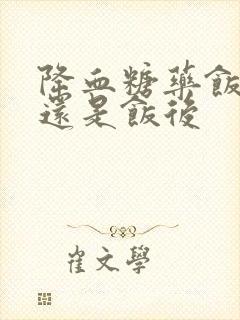 降血糖藥飯
還是飯後
崔文學